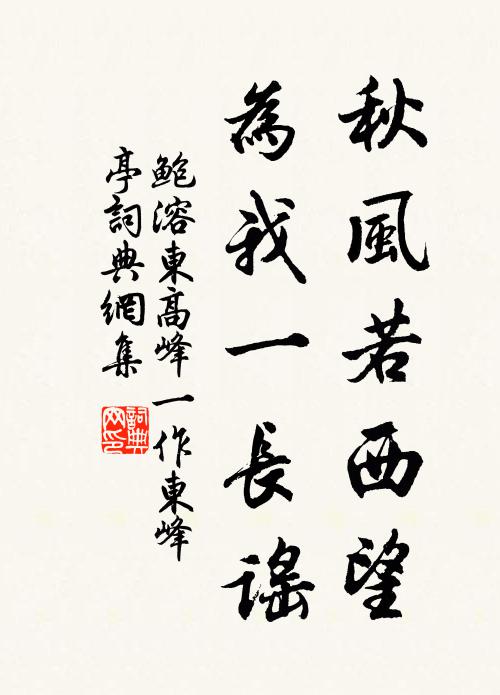 秋風若西望
為我一長謠
鮑溶東高峰一作東峰
亭詞典網集
詞典
网印